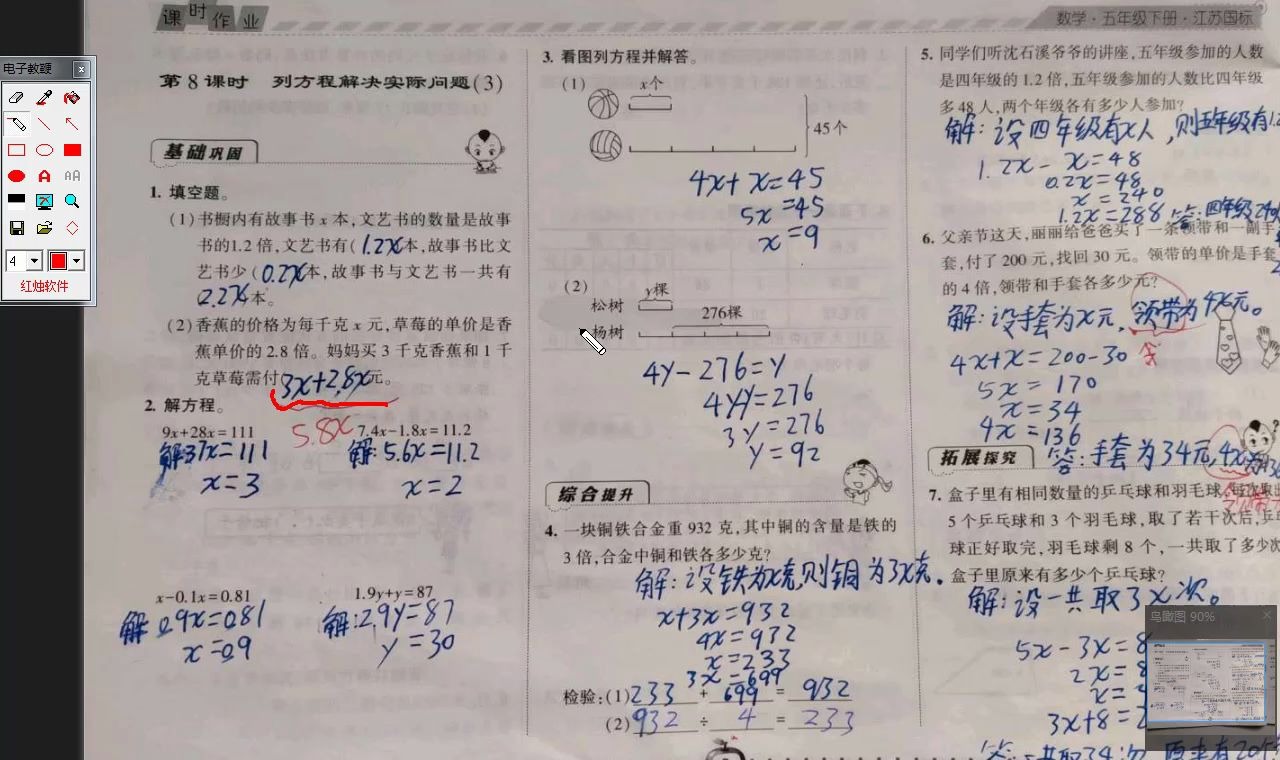 课时作业
数学·五年级下册·江苏国标
电子教鞭
红烛软件
4
第 8 课时 列方程解决实际问题(3)
基础巩固
1. 填空题。
(1)书橱内有故事书 x 本,文艺书的数量是故事
书的1.2 倍,文艺书有(1.2x本,故事书比文
艺书少(0.2x本,故事书与文艺书一共有
2.2x本。
(2)香蕉的价格为每千克 x 元,草莓的单价是香
蕉单价的 2.8 倍。妈妈买 3 千克香蕉和 1 千
克草莓需付(3x+2.8x元。
5.8x
2. 解方程。
9x+28x=111 7.4x-1.8x=11.2
解:37x=111 解:5.6x=11.2
x=3 x=2
x-0.1x=0.81 1.9y+y=87
解:0.9x=0.81 解:2.9y=87
x=0.9 y=30
3. 看图列方程并解答。
(1) x个
45个
4x+x=45
5x=45
x=9
(2) y棵
松树
276棵
杨树
4y-276=y
4y-y=276
3y=276
y=92
综合提升
4. 一块铜铁合金重 932 克,其中铜的含量是铁的
3 倍,合金中铜和铁各多少克?
解:设铁为x克,则铜为3x克。
x+3x=932
4x=932
x=233
3x=699
检验:(1)233 + 699 = 932
(2)932 ÷ 4 = 233
5. 同学们听沈石溪爷爷的讲座,五年级参加的人数
是四年级的 1.2 倍,五年级参加的人数比四年级
多 48 人,两个年级各有多少人参加?
解:设四年级有x人,则五年级有1.2
1.2x-x=48
0.2x=48
x=240
1.2x=288 答:四年级240
6. 父亲节这天,丽丽给爸爸买了一条领带和一副手
套,付了 200 元,找回 30 元。领带的单价是手套
的 4 倍,领带和手套各多少元?
解:设手套为x元,领带为4x元。
4x+x=200-30
5x=170
x=34
4x=136
答:手套为34元,4x为
拓展探究
7. 盒子里有相同数量的乒乓球和羽毛球,每次取出
5 个乒乓球和 3 个羽毛球,取了若干次后,乒乓
球正好取完,羽毛球剩 8 个,一共取了多少次
盒子里原来有多少个乒乓球?
解:设一共取了x次。
5x-3x=8
2x=8
x=4
3x+8=2
鸟瞰图 90%